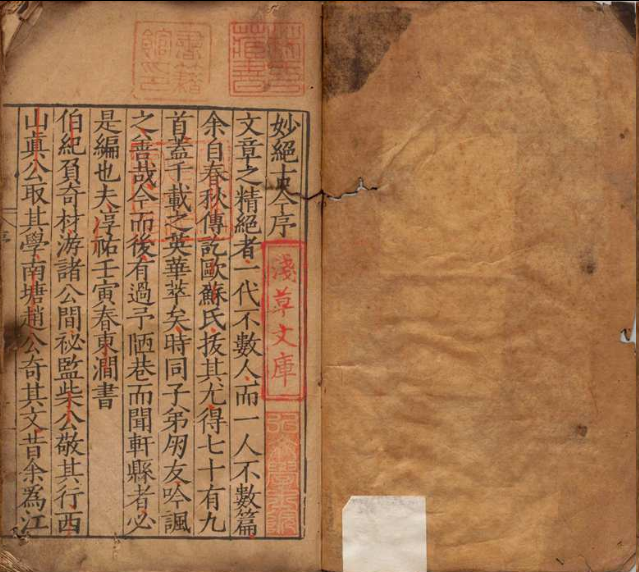 妙絕古今序
文章之精絕者一代不數人而一人不數篇
余自春秋傳訖歐蘇氏拔其尤得七十有九
首蓋千載之英華萃矣時同子弟朋友吟諷
之善哉今而後有過予陋巷而聞軒縣者必
是編也夫淳祐壬寅春東澗書
伯紀負奇材游諸公間祕監柴公敬其行西
山真公取其學南塘趙公奇其文昔余為江
序
淺草文庫
書籍館印